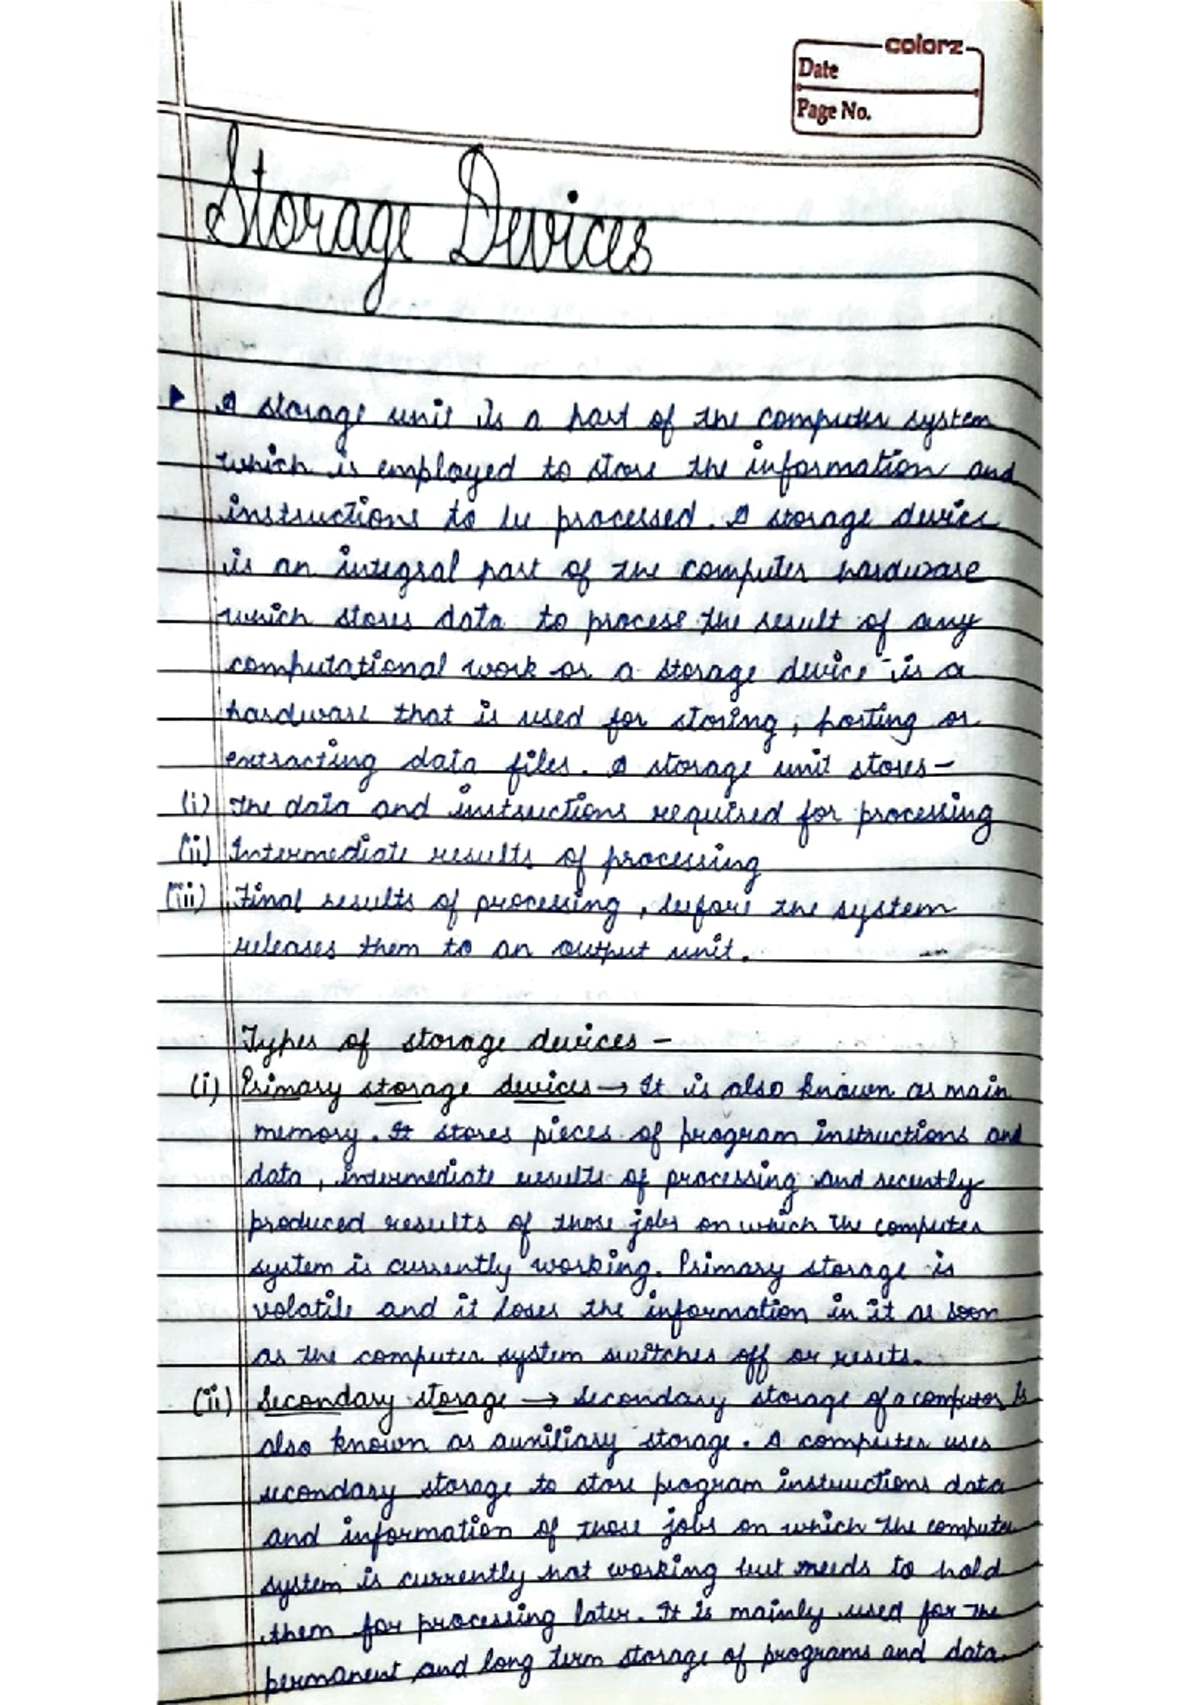 colorz
Date
Page No.
Storage Devices
A storage unit is a part of the computer system
which is employed to store the information and
instructions to be processed. A storage device
is an integral part of the computer hardware
which stores data to process the result of any
computational work or a storage device is a
hardware that is used for storing, porting or
extracting data files. A storage unit stores-
(i) The data and instructions required for processing
(ii) Intermediate results of processing
(iii) Final results of processing, before the system
releases them to an output unit.
Types of storage devices -
(i) Primary storage devices → It is also known as main
memory. It stores pieces of program instructions and
data, intermediate results of processing and recently
produced results of those jobs on which the computer
system is currently working. Primary storage is
volatile and it loses the information in it as soon
as the computer system switches off or resets.
(ii) Secondary storage → Secondary storage of a computer is
also known as auxiliary storage. A computer uses
secondary storage to store program instructions data
and information of those jobs on which the computer
system is currently not working but needs to hold
them for processing later. It is mainly used for the
permanent and long term storage of programs and data.